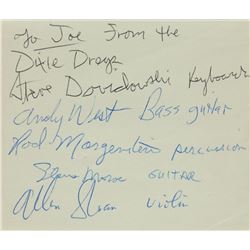 To Joe From the
Dixie Dregs
Steve Davidowski Keyboards
Andy West Bass guitar
Rod Morgenstein percussion
Steve Morse GUITAR
Allen Sloan violin